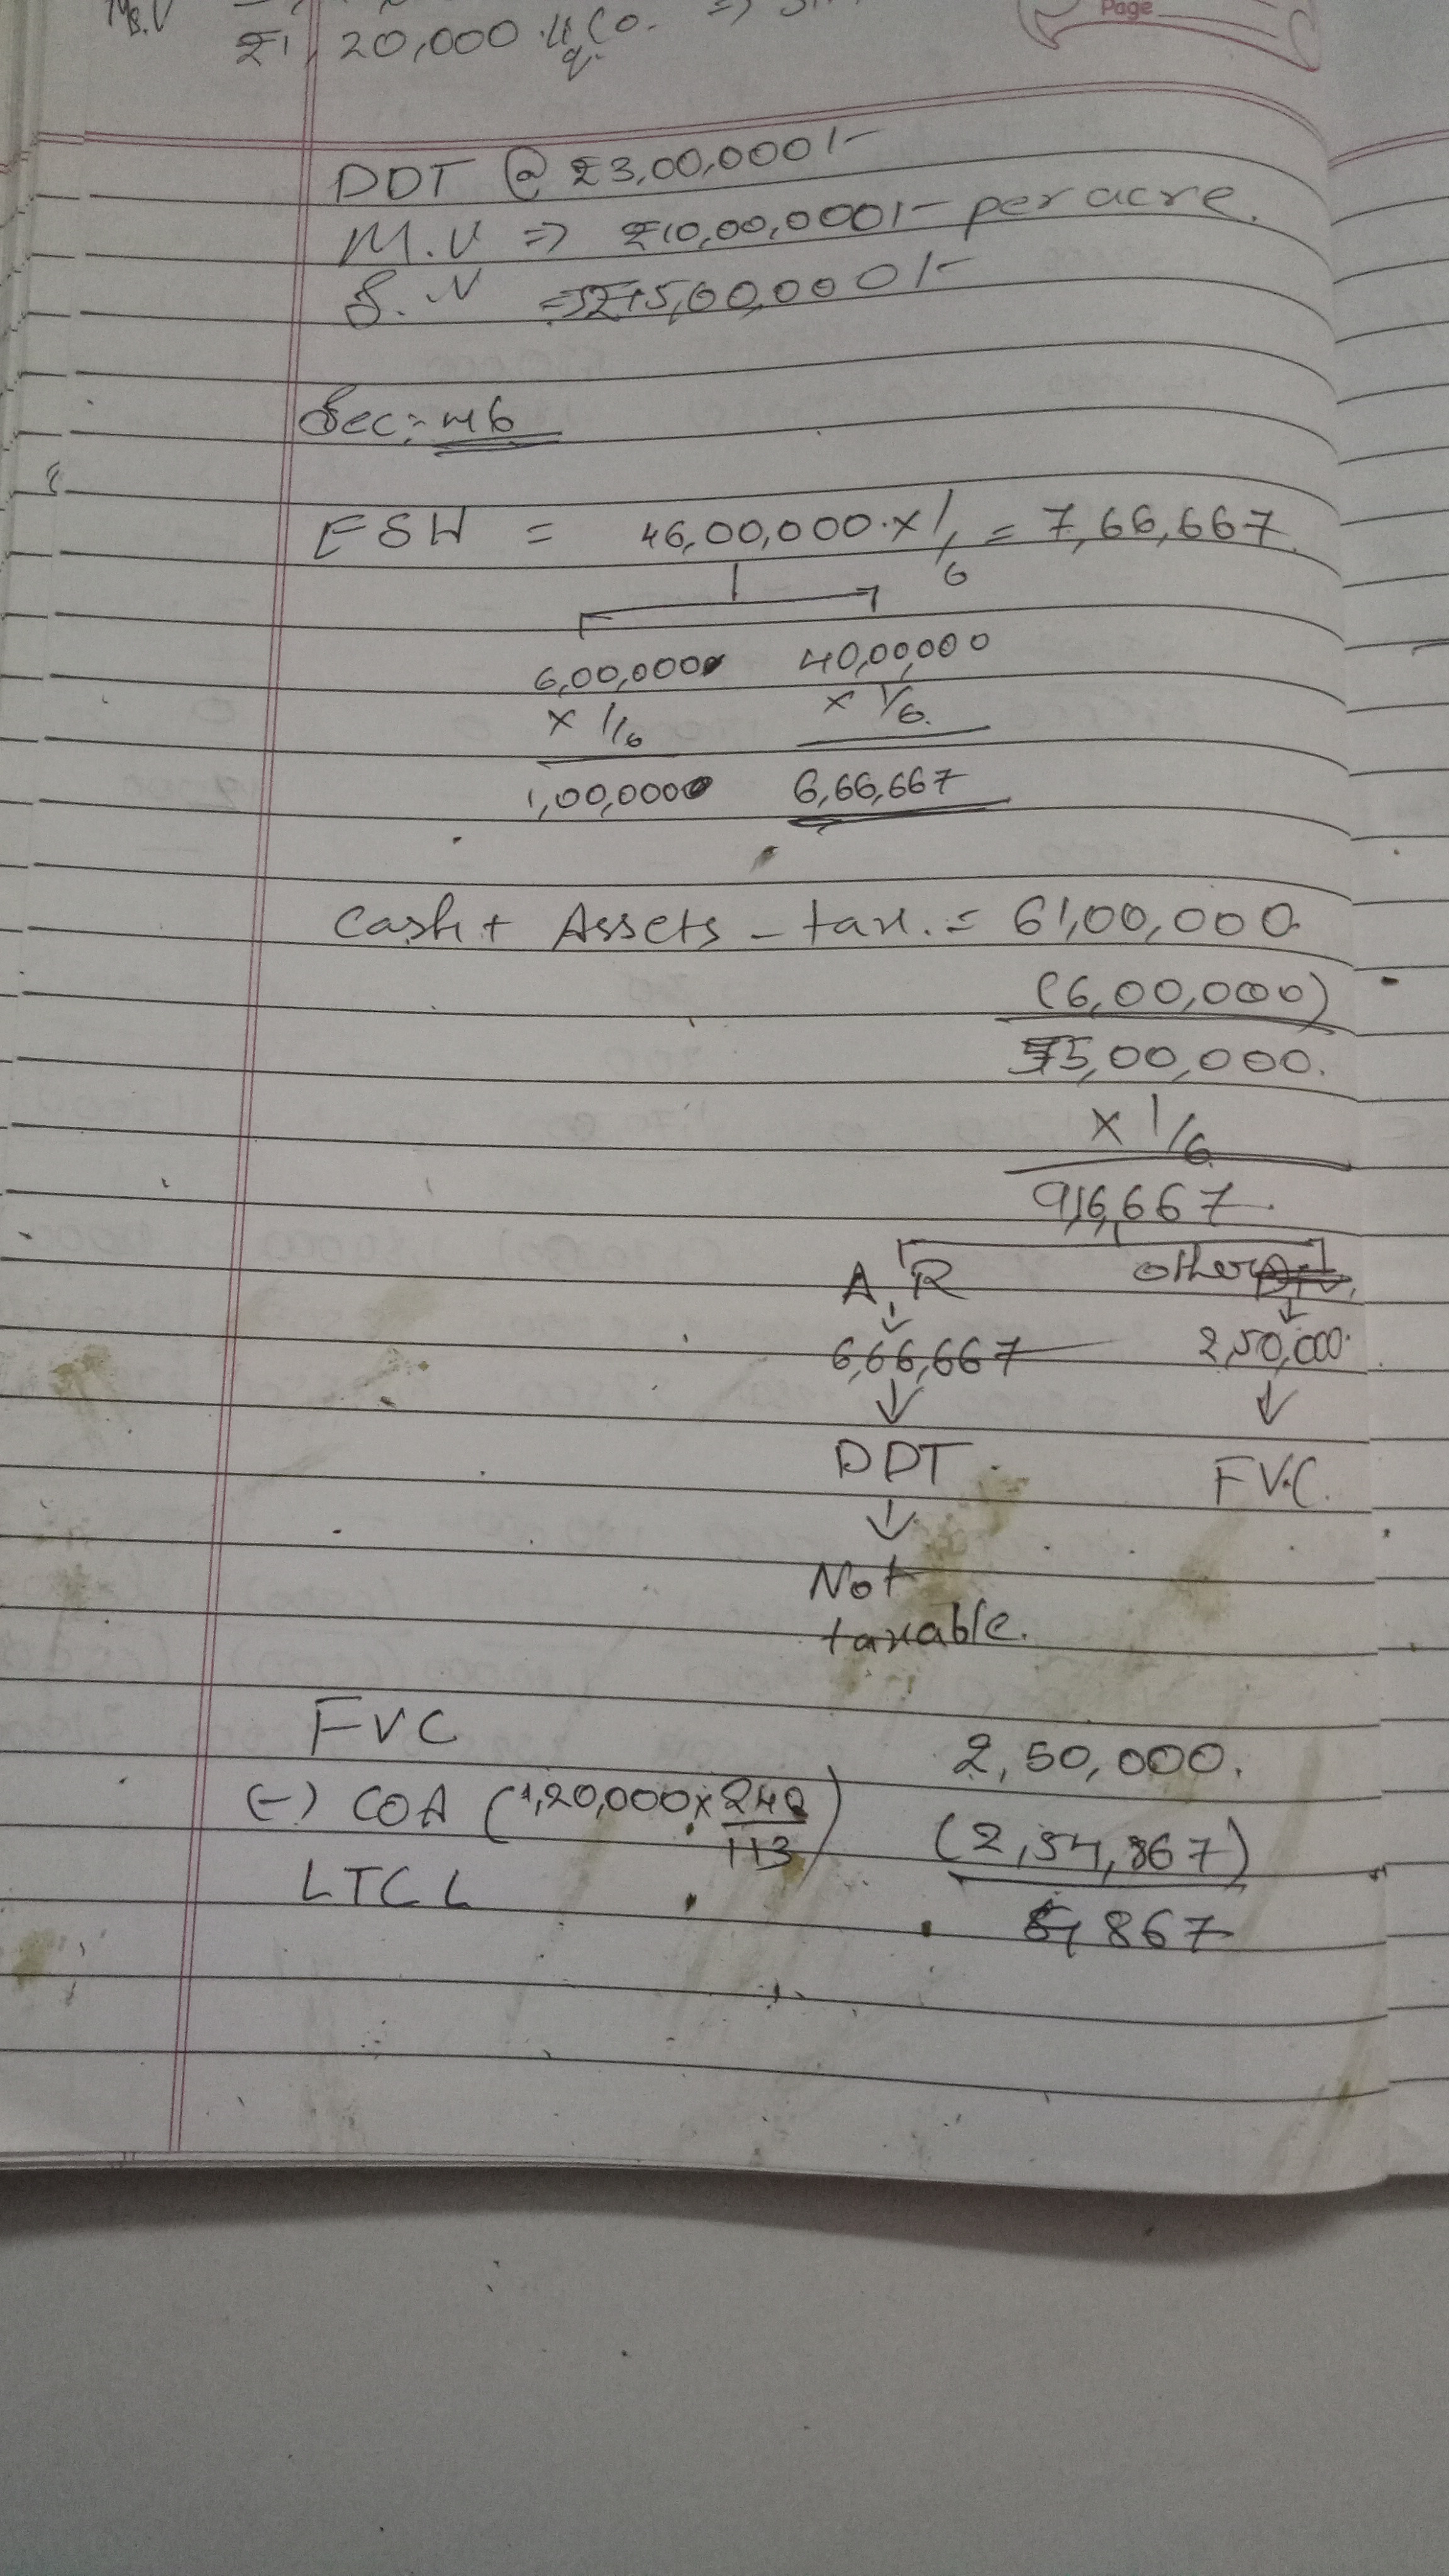 Page
₹1,20,000 liq Co. =>
DDT @ ₹3,00,000/-
M.V => ₹10,00,000/- per acre.
S.V => ₹15,00,000/-
Sec:- 46
ESH = 46,00,000 x 1/6 = 7,66,667
6,00,000 40,00,000
x 1/6 x 1/6
1,00,000 6,66,667
Cash + Assets - tax. = 61,00,000
(6,00,000)
55,00,000.
x 1/6
9,16,667
A.R other
6,66,667 2,50,000
DDT FVC.
Not
taxable.
FVC 2,50,000.
(-) COA (1,20,000 x 240/113) (2,54,867)
LTCL 4,867